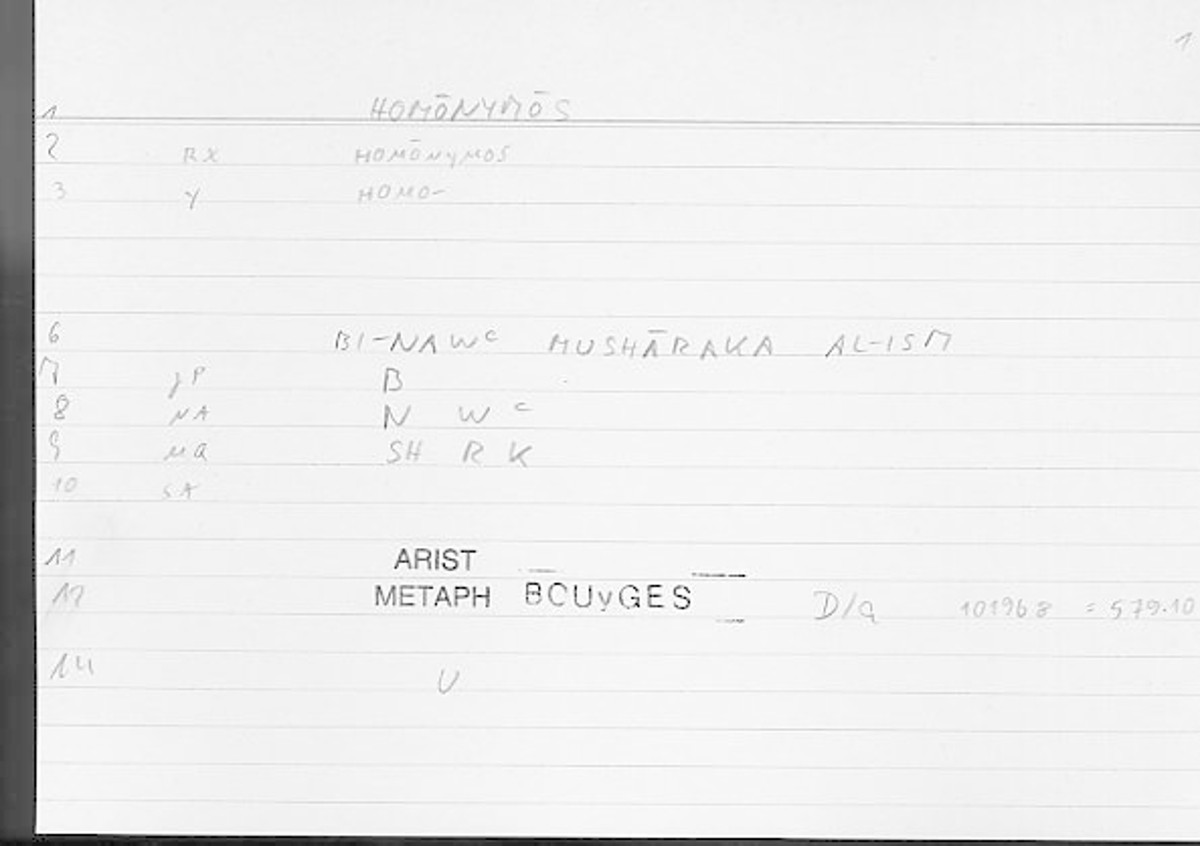 1
1 HOMŌNYMŌS
2 RX HOMŌNYMOS
3 Y HOMO-
6 BI-NAWᶜ MUSHĀRAKA AL-ISM
7 JP B
8 NA N W ᶜ
9 MQ SH R K
10 SA
11 ARIST
12 METAPH BOUyGES D/a 1019b8 = 579.10
14 U